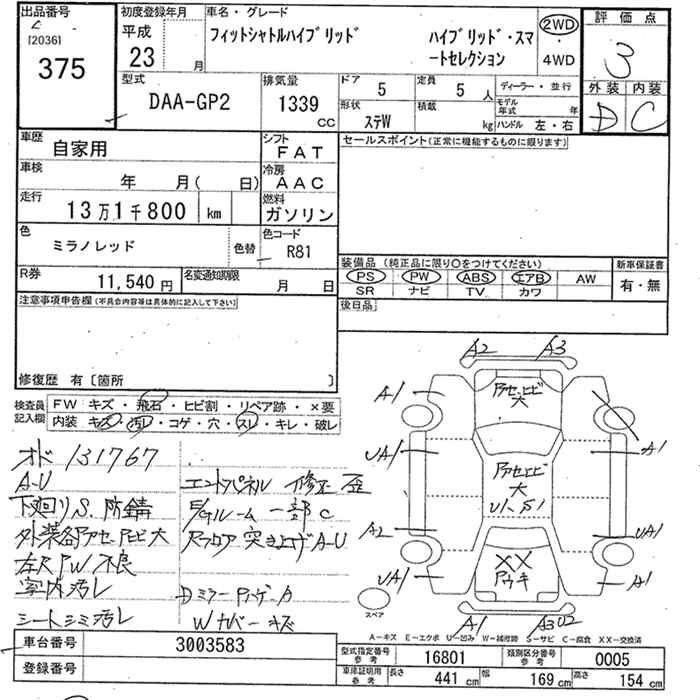 出品番号
[2036]
375
初度登録年月
平成
23 月
車名・グレード
フィットシャトルハイブリッド ハイブリッド・スマートセレクション
2WD
・
4WD
評価点
3
外装 内装
D C
型式
DAA-GP2
排気量
1339
cc
ドア
5
定員
5 人
ディーラー・並行
形状
ステW
積載
kg
モデル年式 年
ハンドル 左・右
車歴
自家用
シフト
FAT
セールスポイント(正常に機能するものに限ります)
車検
年 月( 日)
冷房
AAC
走行
13万1千800 km
燃料
ガソリン
色
ミラノレッド
色替
色コード
R81
装備品 (純正品に限り○をつけてください)
PS PW ABS エアB AW
SR ナビ TV カワ
新車保証書
有・無
R券
11,540 円
名変通知期限
月 日
後日品
注意事項申告欄(不具合内容等は具体的に記入して下さい)
修復歴 有〔箇所 〕
検査員記入欄
FW キズ・飛石・ヒビ割・リペア跡・×要
内装 キズ・汚レ・コゲ・穴・スレ・キレ・破レ
オド 131767
A-U
下廻りS.防錆
外装各所アセ・ヒビ大
左R PW不良
室内汚レ
シートシミ汚レ
エンドパネル 修正 歪
E/Gルーム 一部C
Rフロア 突き上げA-U
Dミラー
Wカバーキズ
A2 A3
A1
アセ・ヒビ
大
UA1
A1
アセ・ヒビ
大
U1、S1
A2
UA1
UA1
XX
A1
スペア
A1
A3 U2
A−キズ E−エクボ U−凹み W−補修跡 S−サビ C−腐食 XX−交換済
車台番号
3003583
登録番号
型式指定番号
参考
16801
類別区分番号
参考
0005
車庫証明用
参考
長さ
441 cm
幅
169 cm
高さ
154 cm